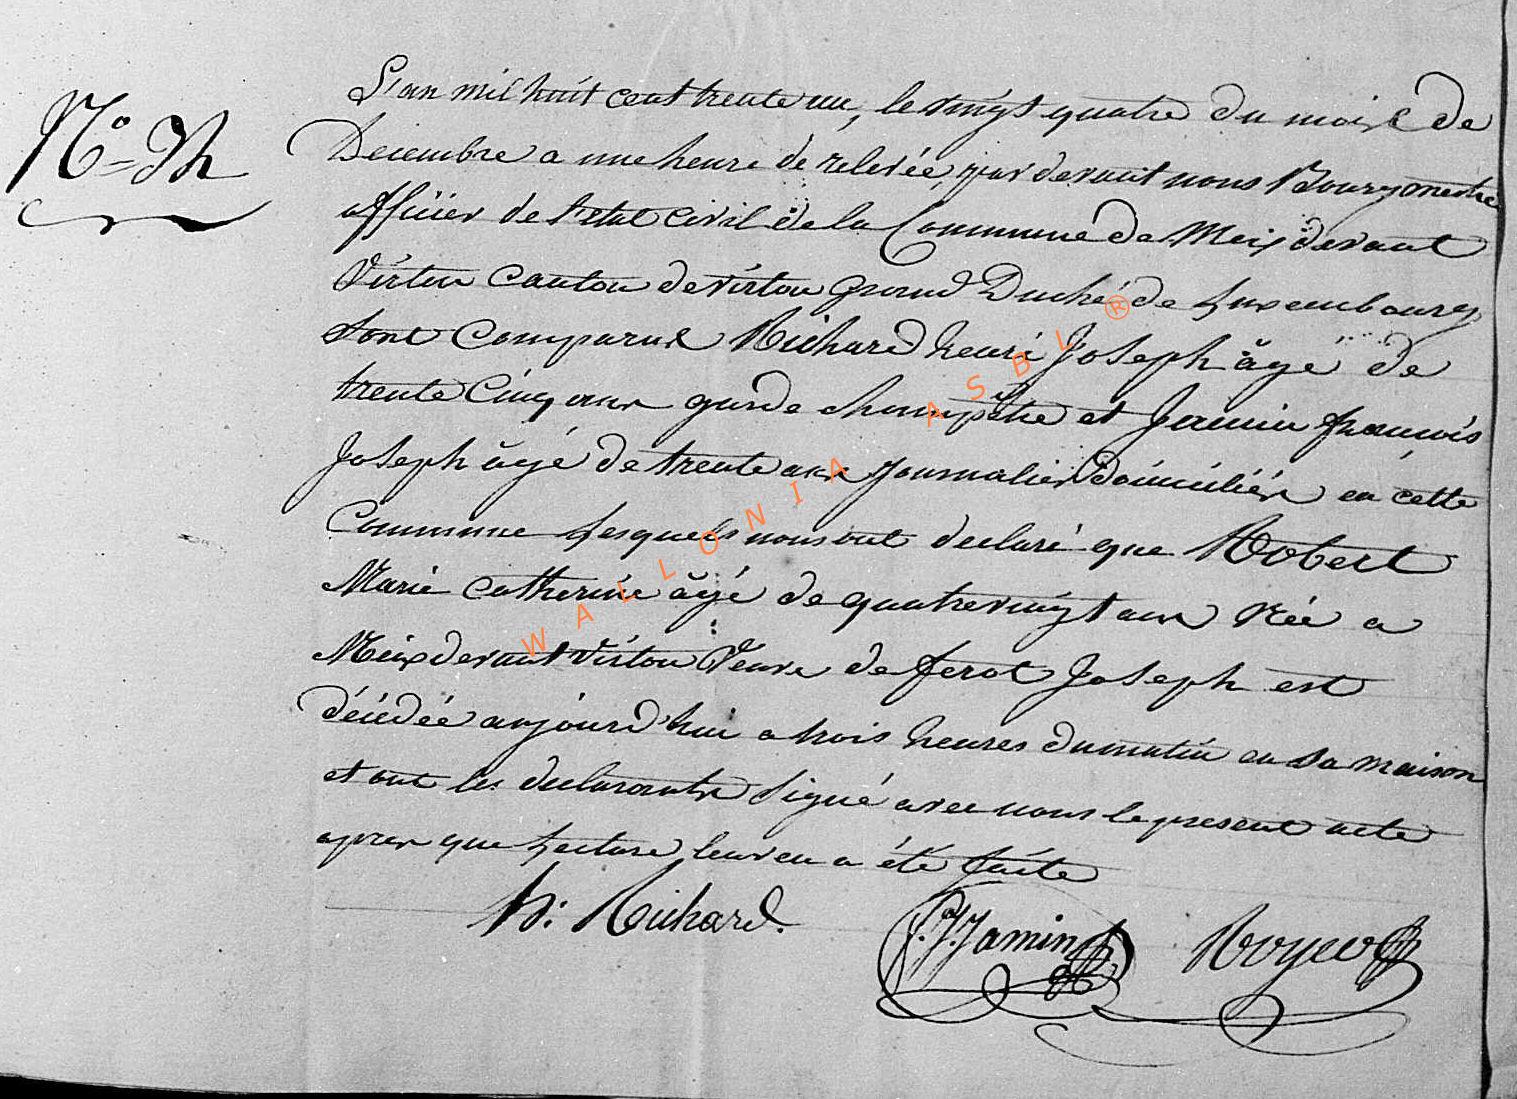 L'an mil huit cent trente un, le vingt quatre du mois de
Decembre a une heure de relevée, par devant nous Bourgmestre
officier de l'etat civil de la Commune de Meix devant
Virton Canton de virton grand Duché de Luxembourg
sont Comparus Richard henri Joseph âgé de
trente Cinq ans garde champêtre et Jamin françois
Joseph âgé de trente ans Journalier domiciliés en cette
Commune Lesquels nous ont declaré que Robert
Marie Catherine âgé de quatrevingt ans Née a
Meix devant Virton Veuve de ferot Joseph est
décédée aujourd'hui a trois heures du matin en sa maison
et ont les declarants signé avec nous le present acte
apres que Lecture leur en a été faite
h: Richard.
F.J. Jamin
WALLONIA ASBL ®
N°